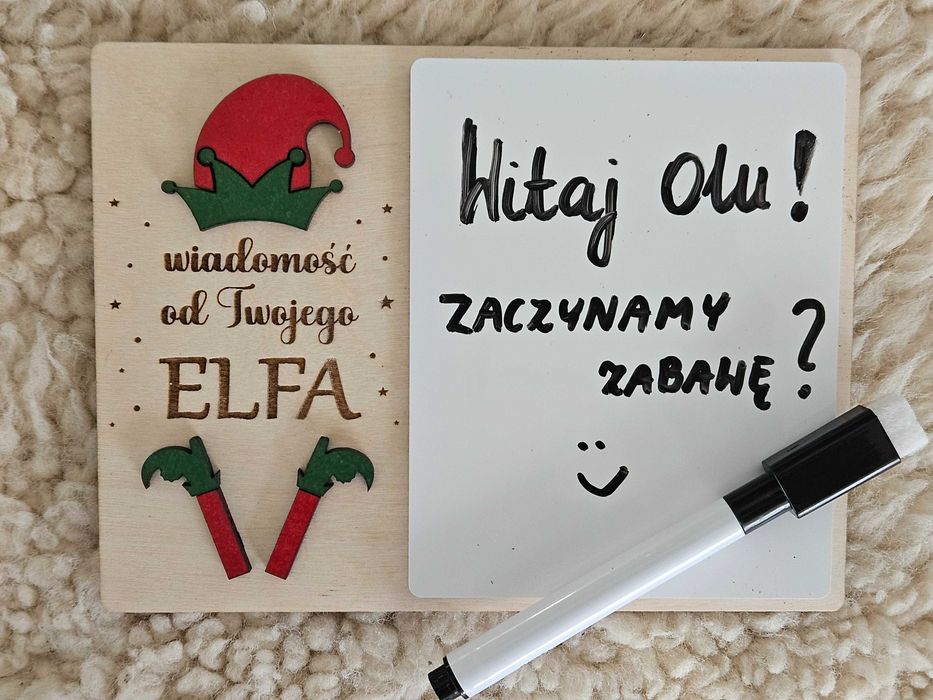 wiadomość
od Twojego
ELFA
Witaj Olu!
ZACZYNAMY
ZABAWĘ?